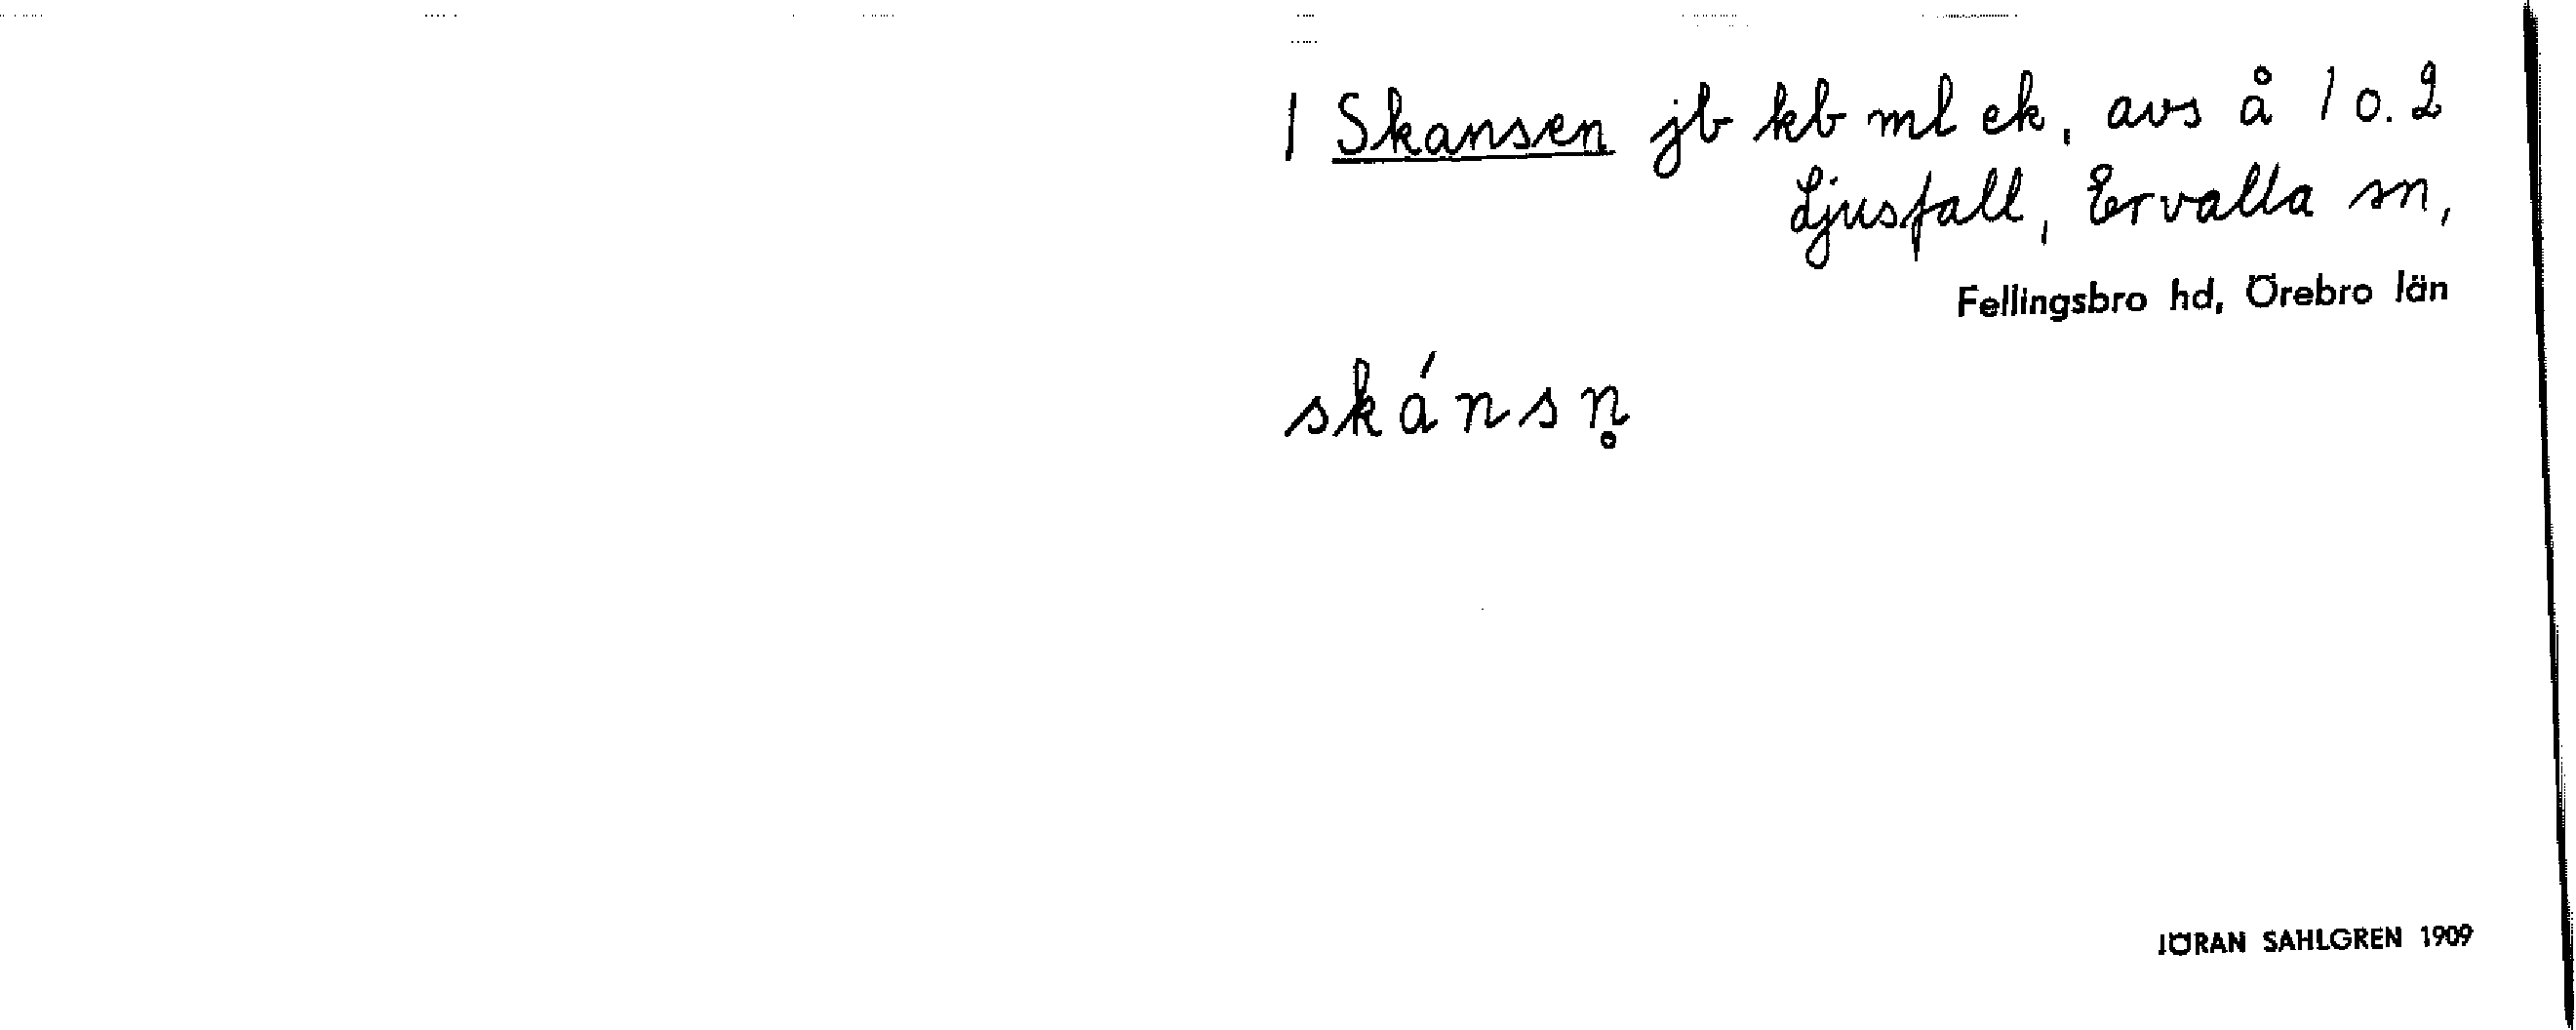 1 Skansen jb kb ml ek, avs å 1 o. 2
Ljusfall, Ervalla sn,
Fellingsbro hd, Örebro län
skánsn̥
JÖRAN SAHLGREN 1909